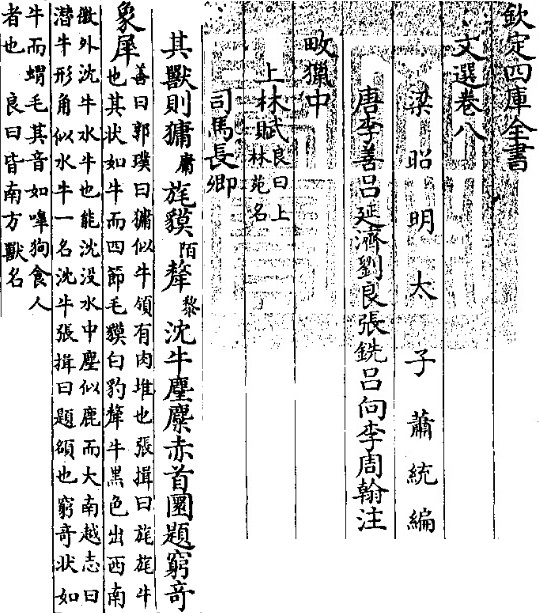 欽定四庫全書
文選卷八
梁昭明太子蕭統編
唐李善呂延濟劉良張銑呂向李周翰注
畋獵中
上林賦良曰上林苑名
司馬長卿
其獸則㺎庸旄獏陌犛黎沈牛麈麋赤首圜題窮奇
象犀善曰郭璞曰㺎似牛領有肉堆也張揖曰旄旄牛
也其状如牛而四節毛獏白豹犛牛黒色出西南
徼外沈牛水牛也能沈没水中麈似鹿而大南越志曰
潜牛形角似水牛一名沈牛張揖曰題頟也窮竒状如
牛而蝟毛其音如嘷狗食人
者也 良曰皆南方獸名